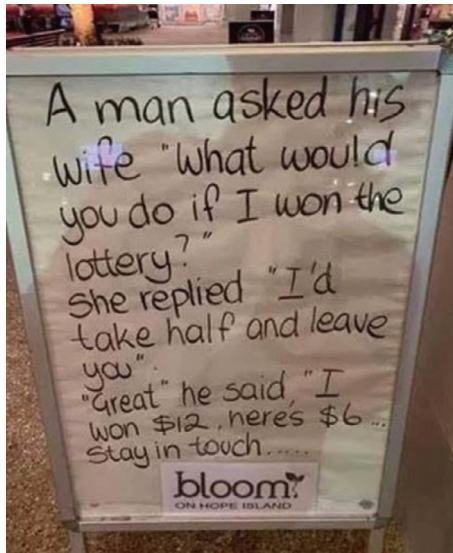 A man asked his
wife "What would
you do if I won the
lottery?"
She replied "I'd
take half and leave
you".
"Great" he said, "I
won $12, heres $6...
Stay in touch.....
bloom
ON HOPE ISLAND